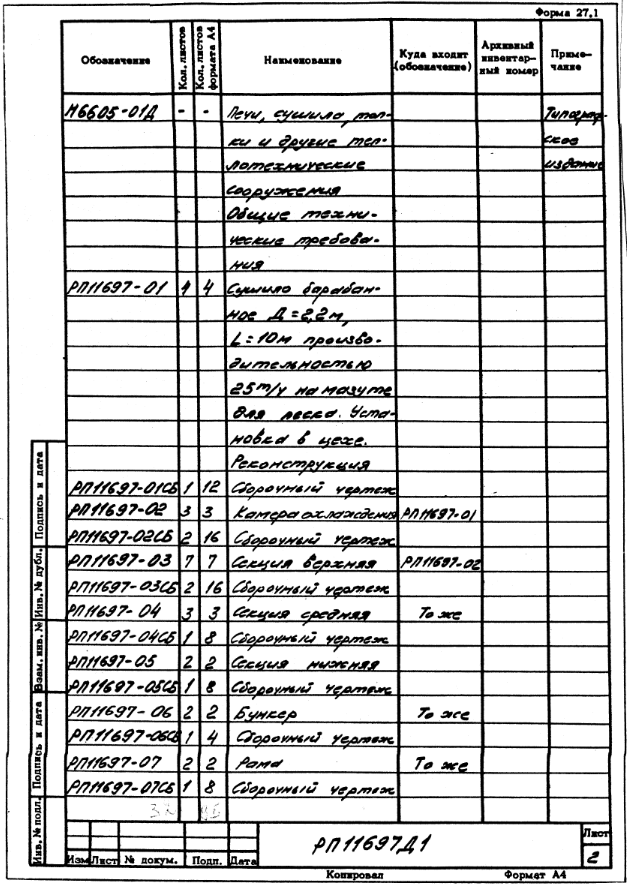 Форма 27,1
Обозначение Кол. листов Кол. листов формата А4 Наименование Куда входит (обозначение) Архивный инвентар- ный номер Приме- чание
М6605-01Д - - Печи, сушила, топ- Типограф-
ки и другие теп- ское
лотехнические издание
сооружения
Общие техни-
ческие требова-
ния
РП11697-01 4 4 Сушило барабан-
ное Д=2,2м,
L=10м произво-
дительностью
25т/ч на мазуте
для песка. Уста-
новка в цехе.
Реконструкция
РП11697-01СБ 1 12 Сборочный чертеж
РП11697-02 3 3 Камера охлаждения РП11697-01
РП11697-02СБ 2 16 Сборочный чертеж
РП11697-03 7 7 Секция верхняя РП11697-02
РП11697-03СБ 2 16 Сборочный чертеж
РП11697-04 3 3 Секция средняя То же
РП11697-04СБ 1 8 Сборочный чертеж
РП11697-05 2 2 Секция нижняя
РП11697-05СБ 1 8 Сборочный чертеж
РП11697-06 2 2 Бункер То же
РП11697-06СБ 1 4 Сборочный чертеж
РП11697-07 2 2 Рама То же
РП11697-07СБ 1 8 Сборочный чертеж
Инв. № подл. Подпись и дата Взам. инв. № Инв. № дубл. Подпись и дата
РП11697Д1
Лист
2
Изм Лист № докум. Подп. Дата
Копировал Формат А4